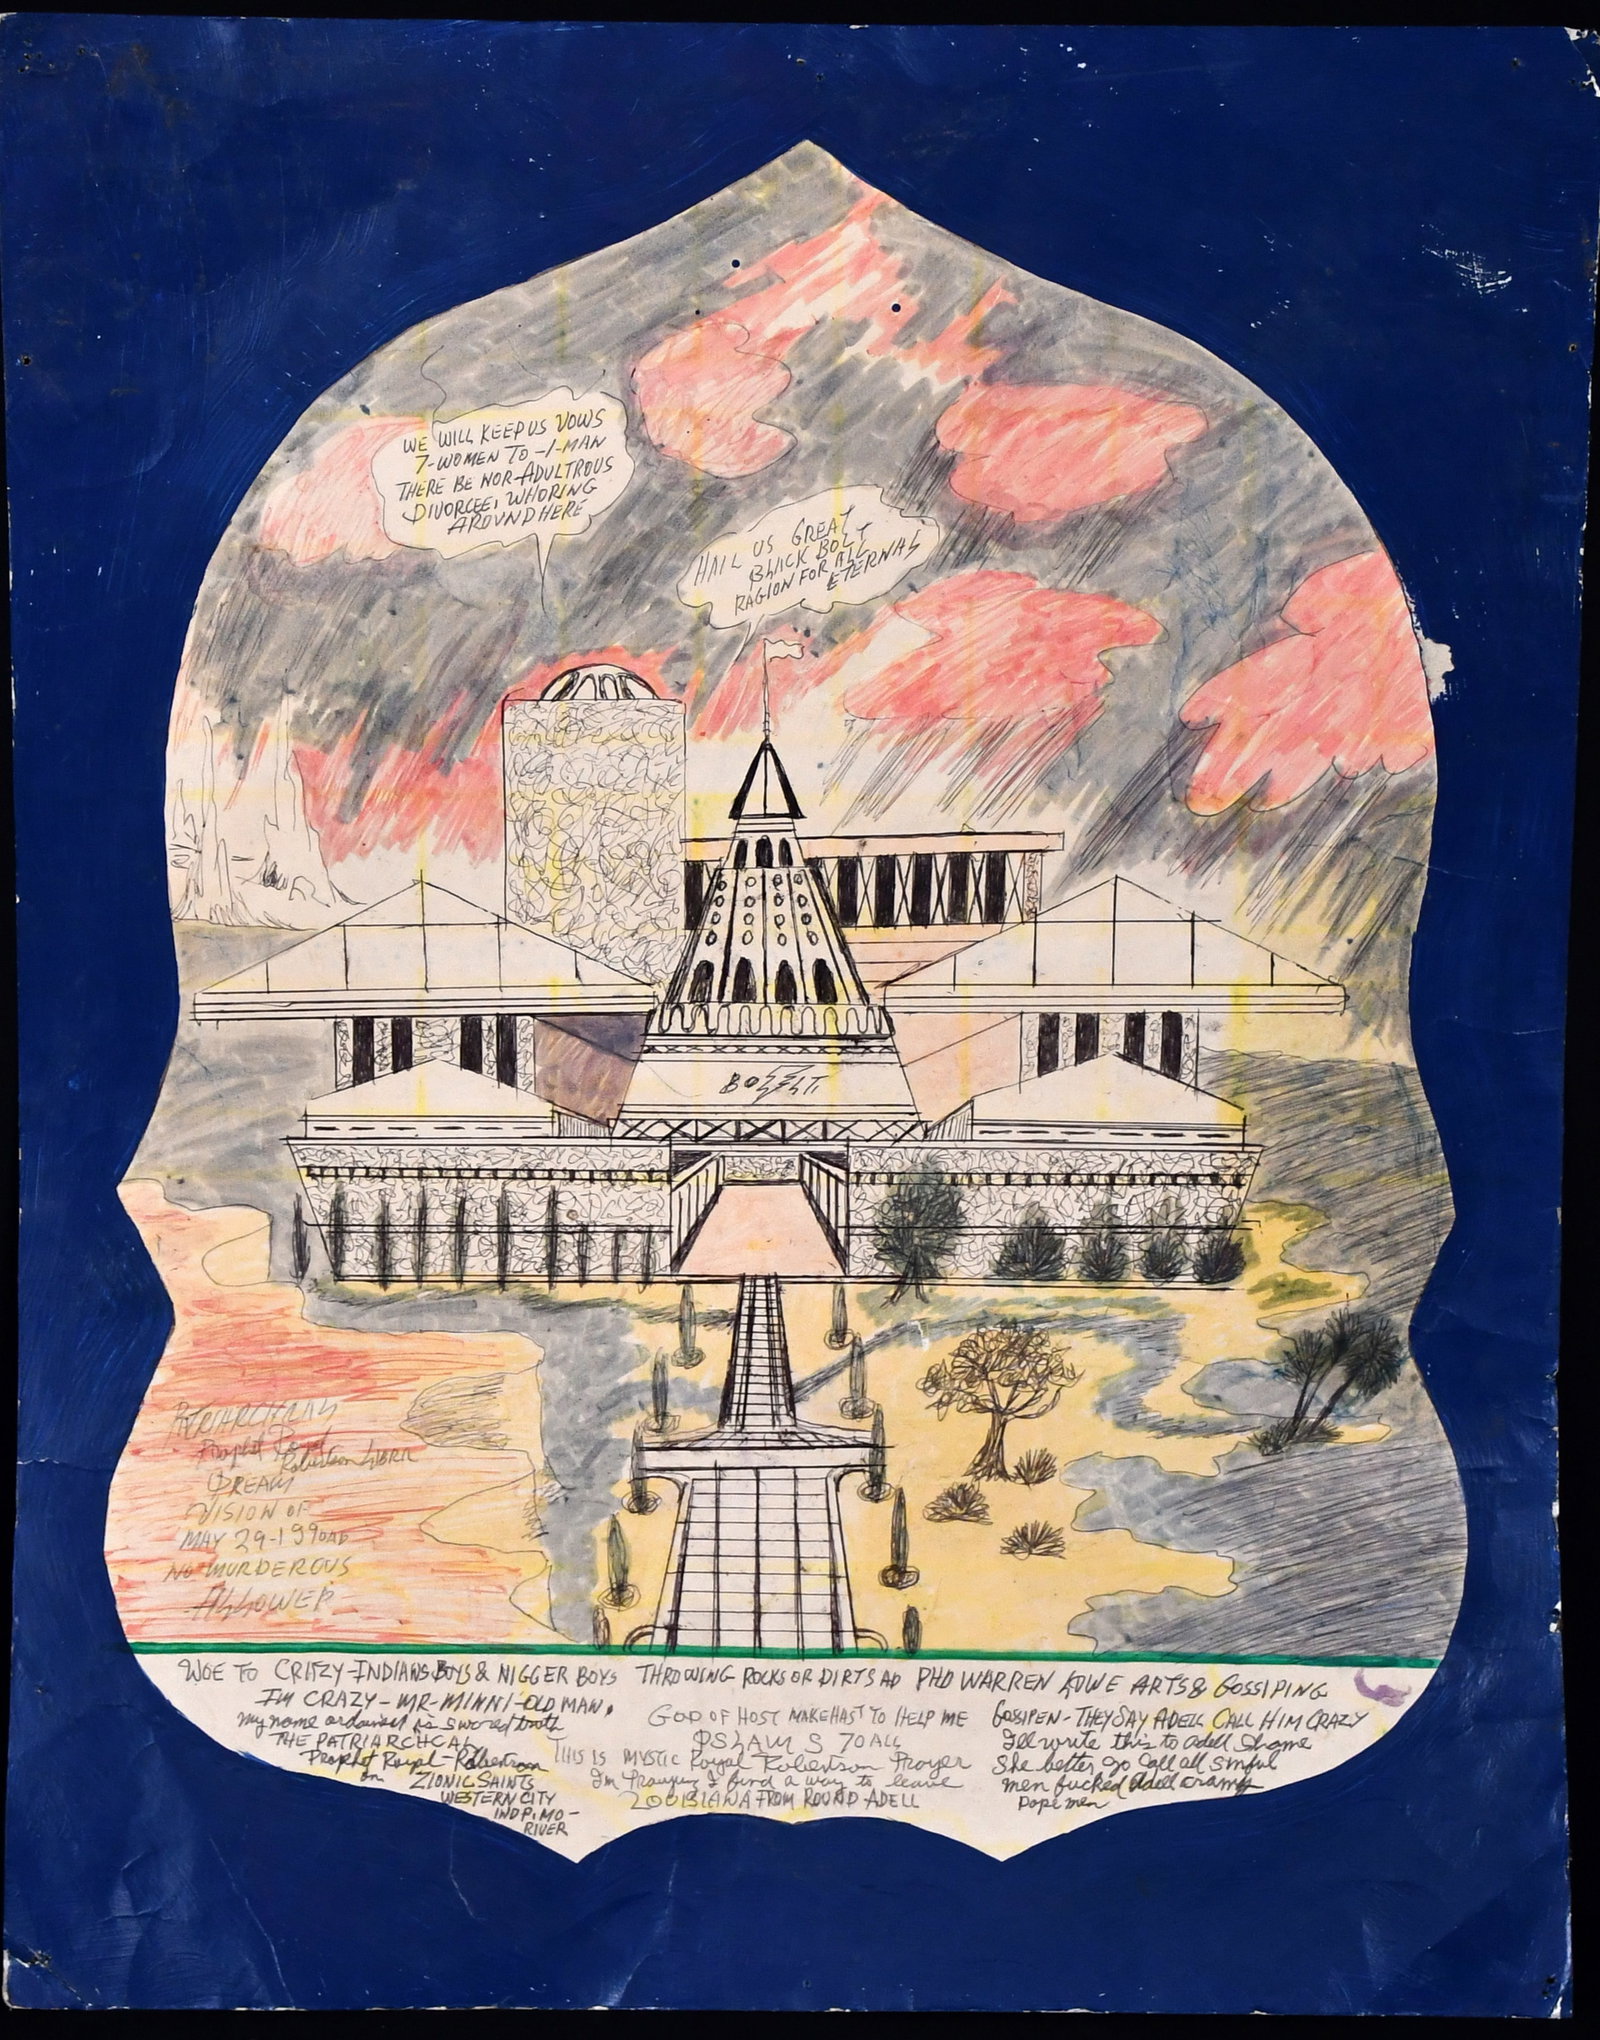 WE WILL KEEP US VOWS
7-WOMEN TO -1-MAN
THERE BE NOR ADULTROUS
DIVORCEE, WHORING
AROUND HERE
HAIL US GREAT
BLACK BOLT
RAGION FOR ALL
ETERNAL
BOLT
PATRIARCHCAL
Prophet Royal
Robertson
DREAM
VISION OF
MAY 29-1990AD
NO MURDEROUS
ALLOWED
WOE TO CRAZY-INDIANS BOYS & NIGGER BOYS THROWING ROCKS OR DIRTS AD PHD WARREN LOWE ARTS & GOSSIPING
I'M CRAZY - MR-MINNI-OLD MAN,
my name ordained is sword truth
THE PATRIARCHCAL
Prophet Royal-Robertson
on ZIONIC SAINTS
WESTERN CITY
INDP. MO-
RIVER
GOD OF HOST MAKE HAST TO HELP ME
PSLAMS 70 ALL
THIS IS MYSTIC Royal Robertson Prayer
I'm Praying I find a way to leave
LOUISIANA FROM ROUND ADELL
GOSSIPEN - THEY SAY ADELL CALL HIM CRAZY
I'll write this to Adell Shame
She better go Call all sinful
men fucked Adell
Dope men